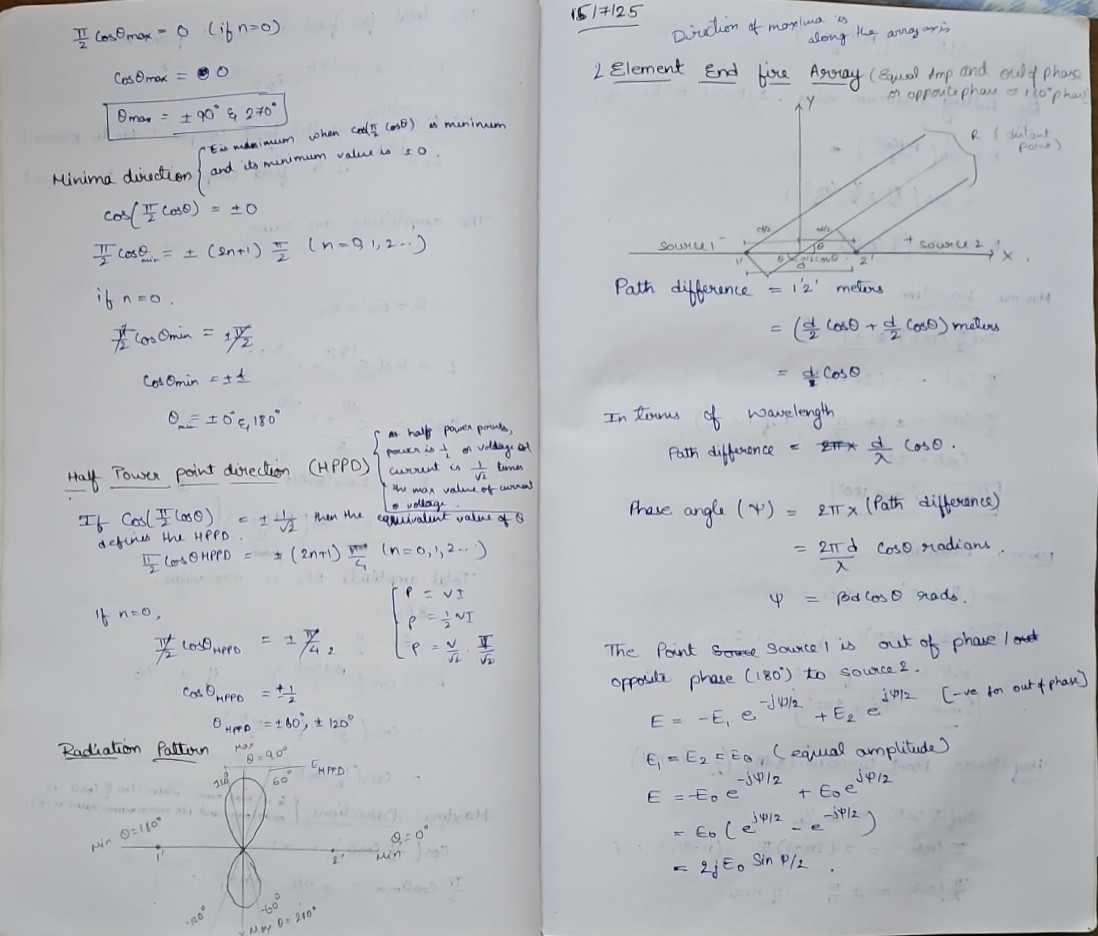 π/2 cosθmax = 0 (if n=0)
cosθmax = 0
θmax = ±90° & 270°
Minima direction { E is minimum when cos(π/2 cosθ) is minimum
and its minimum value is ±0.
cos(π/2 cosθ) = ±0
π/2 cosθmin = ±(2n+1) π/2 (n=0,1,2...)
if n=0.
π/2 cosθmin = ±π/2
cosθmin = ±1
θmin = ±0° & 180°
Half Power point direction (HPPD) { At half power points,
power is 1/2 or voltage or
current is 1/√2 times
the max value of current
or voltage.
If cos(π/2 cosθ) = ± 1/√2 then the equivalent value of θ
defines the HPPD.
π/2 cosθHPPD = ±(2n+1) π/4 (n=0,1,2...)
If n=0,
π/2 cosθHPPD = ± π/4,
[ P = VI
P = 1/2 VI
P = V/√2 . I/√2
cosθHPPD = ±1/2
θHPPD = ±60°, ±120°
Radiation Pattern
Max
θ=90°
EHPPD
120°
60°
Min θ=180°
θ=0°
Min
1'
2'
-120°
-60°
Max θ=270°
15/7/25
Direction of maxima is
along the array axis
2 Element End fire Array (Equal Amp and out of phase
or opposite phase = 180° phase
Y
R (distant
point)
d/2
d/2
source 1 -
+ source 2
1'
θ
θ
d/2 cosθ
2'
X
d
Path difference = 1'2' meters
= (d/2 cosθ + d/2 cosθ) meters
= d cosθ
In terms of wavelength
Path difference = d/λ cosθ.
Phase angle (Ψ) = 2π x (Path difference)
= 2πd/λ cosθ radians.
Ψ = βd cosθ rads.
The Point Source 1 is out of phase /
opposite phase (180°) to source 2.
E = -E₁ e^(-jΨ/2) + E₂ e^(jΨ/2) [-ve for out of phase]
E₁ = E₂ = E₀ (equal amplitude)
E = -E₀ e^(-jΨ/2) + E₀ e^(jΨ/2)
= E₀ (e^(jΨ/2) - e^(-jΨ/2))
= 2jE₀ Sin Ψ/2.